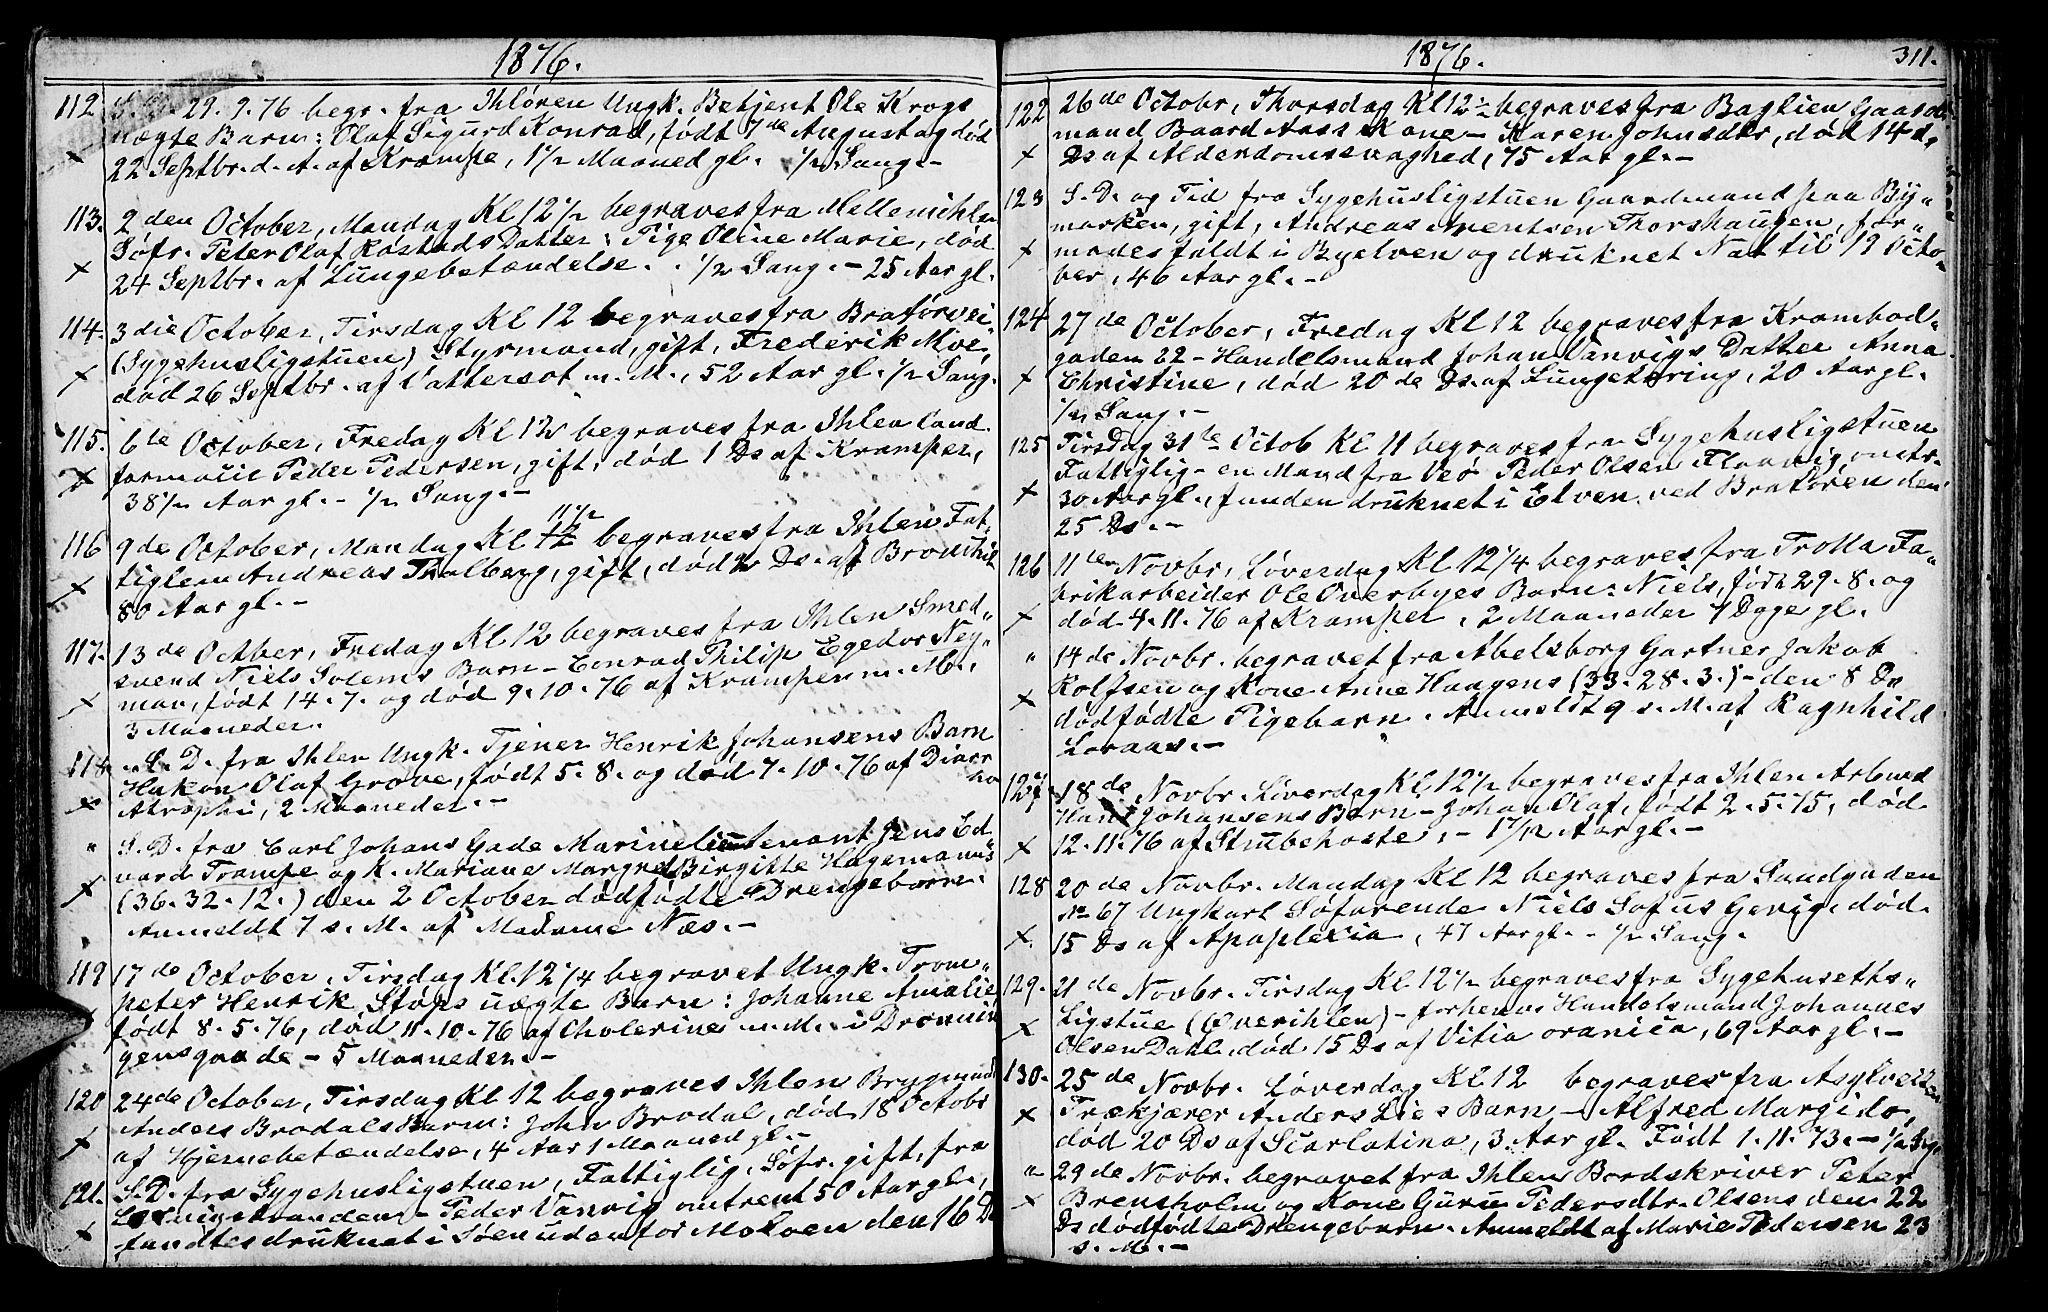 1876.
112. S. D. 29.9.76 begr. fra Ihløren Ungk. Betjent Ole Krogs
uægte Barn: Olaf Sigurd Konrad, født 7de August og død
22 Septbr. d. A. af Krampe, 1 1/2 Maaned gl. 1/2 Sang.-
113. 2den October, Mandag Kl 12 1/2 begraves fra Mellemihlen
Søfr. Peter Olaf Røstads Datter: Pige Oline Marie, død
24 Septbr. af Lungebetændelse. . 1/2 Sang. - 25 Aar gl.
114. 3die October, Tirsdag Kl 12 begraves fra Bratørvei-
(Sygehusligstuen) Styrmand, gift, Frederik Moe,
død 26 Septbr. af Vattersot m. M., 52 Aar gl. 1/2 Sang.
115. 6te October, Fredag Kl 12 begraves fra Ihlen
Peder Pedersen, gift, død 1 Ds af Kramper,
38 1/2 Aar gl. - 1/2 Sang. -
116 9de October, Mandag Kl 12 11 1/2 begraves fra Ihlen Fat-
tiglem Andreas Thalberg, gift, død 2 Ds. af
80 Aar gl. -
117. 13de Octber, Fredag Kl 12 begraves fra Ihlen Smed-
svend Niels Solems Barn - Conrad Philip Egedor Ney-
man, født 14.7. og død 9.10.76 af Krampen m. M.,
3 Maaneder.
118. S. D. fra Ihlen Ungk. Tjener Henrik Johansens Barn
Hakon Olaf Grove, født 5.8. og død 7.10.76 af
Atrophi, 2 Maaneder. -
" S. D. fra Carl Johans Gade Marinelieutenant Jens Ed-
vard Trampe og K. Mariane Margret Birgitte Hagemann's
(36. 32. 12.) den 2 October dødfødte Drengebarn.
Anmeldt 7 s. M. af Madame Næs. -
119 17de October, Tirsdag Kl. 12 1/4 begravet Ungk. Trom-
peter Henrik Støps uægte Barn: Johanne Amalie
født 8.5.76, død 11.10.76 af Cholerine m. M. i Dronnin-
gensgade - 5 Maaneder. -
120 24de October, Tirsdag Kl 12 begraves Ihlen Brygmand
Anders Brodals Barn: John Brodal, død 18 Octobr
af Hjernebetændelse, 4 Aar 1 Maaned gl. -
121. S. D. fra Sygehusligstuen, Fattiglig, Søfr. gift, fra
Peder Vanvig omtrent 50 Aar gl.,
fandtes druknet i Søen udenfor Moloen den 16 Ds
1876.
311.
122 26de Octobr, Thorsdag Kl 12 1/2 begraves fra Baglien Gaard-
mand Baard Aass Kone - Karen Johnsdtr, død 14 d.
Ds af Alderdomssvaghed, 75 Aar gl. -
123 S. D. og Tid fra Sygehusligstuen Gaardmand paa By-
marken, gift, Andreas Arentsen Thorshaugen, for-
modes faldt i Byelven og druknet Nat til 19 Octo-
ber, 46 Aar gl. -
124 27de October, Fredag Kl 12 begraves fra Krambod-
gaden 22 - Handelsmand Johan Vanvigs Datter Anna
Christine, død 20de Ds. af Lungetæring, 20 Aar gl.
1/2 Sang. -
125 Tirsdag 31te Octob Kl 11 begraves fra Sygehusligstuen
Fattiglig - en Mand fra Veø Peder Olsen Flaavig, omtr.
30 Aar gl., funden druknet i Elven ved Bratøren den
25 Ds. -
126 11te Novbr, Løverdag Kl 12 1/4 begraves fra Trolla Fa-
brikarbeider Ole Overbyes Barn: Niels, født 29.8. og
død 4.11.76 af Kramper, 2 Maaneder 7 Dage gl.
" 14de Novbr. begravet fra Abelsborg Gartner Jakob
Rolfsen og Kone Anne Haagens (33. 28. 3.) - den 8 Ds
dødfødte Pigebarn. Anmeldt 9 s. M. af Ragnhild
Loraas. -
127 18de Novbr. Løverdag Kl. 12 1/2 begraves fra Ihlen Arbmd
Hans Johansens Barn - Johan Olaf, født 2.5.75, død
12.11.76 af Strubehoste, - 1 7/12 Aar gl. -
128 20de Novbr. Mandag Kl 12 begraves fra Sandgaden
No 67 Ungkarl Søfarende Niels Sofus Gevig, død
15 Ds af Apoplexia, 47 Aar gl. - 1/2 Sang.
129. 21de Novbr. Tirsdag Kl 12 1/2 begraves fra Sygehusetts-
Ligstue (Øverihlen) - forhenv Handelsmand Johannes
Olsen Dahl, død 15 Ds af Vitia oranica, 69 Aar gl. -
130. 25de Novbr. Løverdag Kl 12 begraves fra Asylveiten
Træskjærer Anders Lies Barn - Alfred Margido,
død 20 Ds af Scarlatina, 3 Aar gl. Født 1.11.73. - 1/2 Sg.
" 29de Novbr. begravet fra Ihlen Bordskriver Peter
Brensholm og Kone Guru Pedersdtr. Olsens den 22
Ds dødfødte Drengebarn. Anmeldt af Marie Pedersen 23
s. M. -